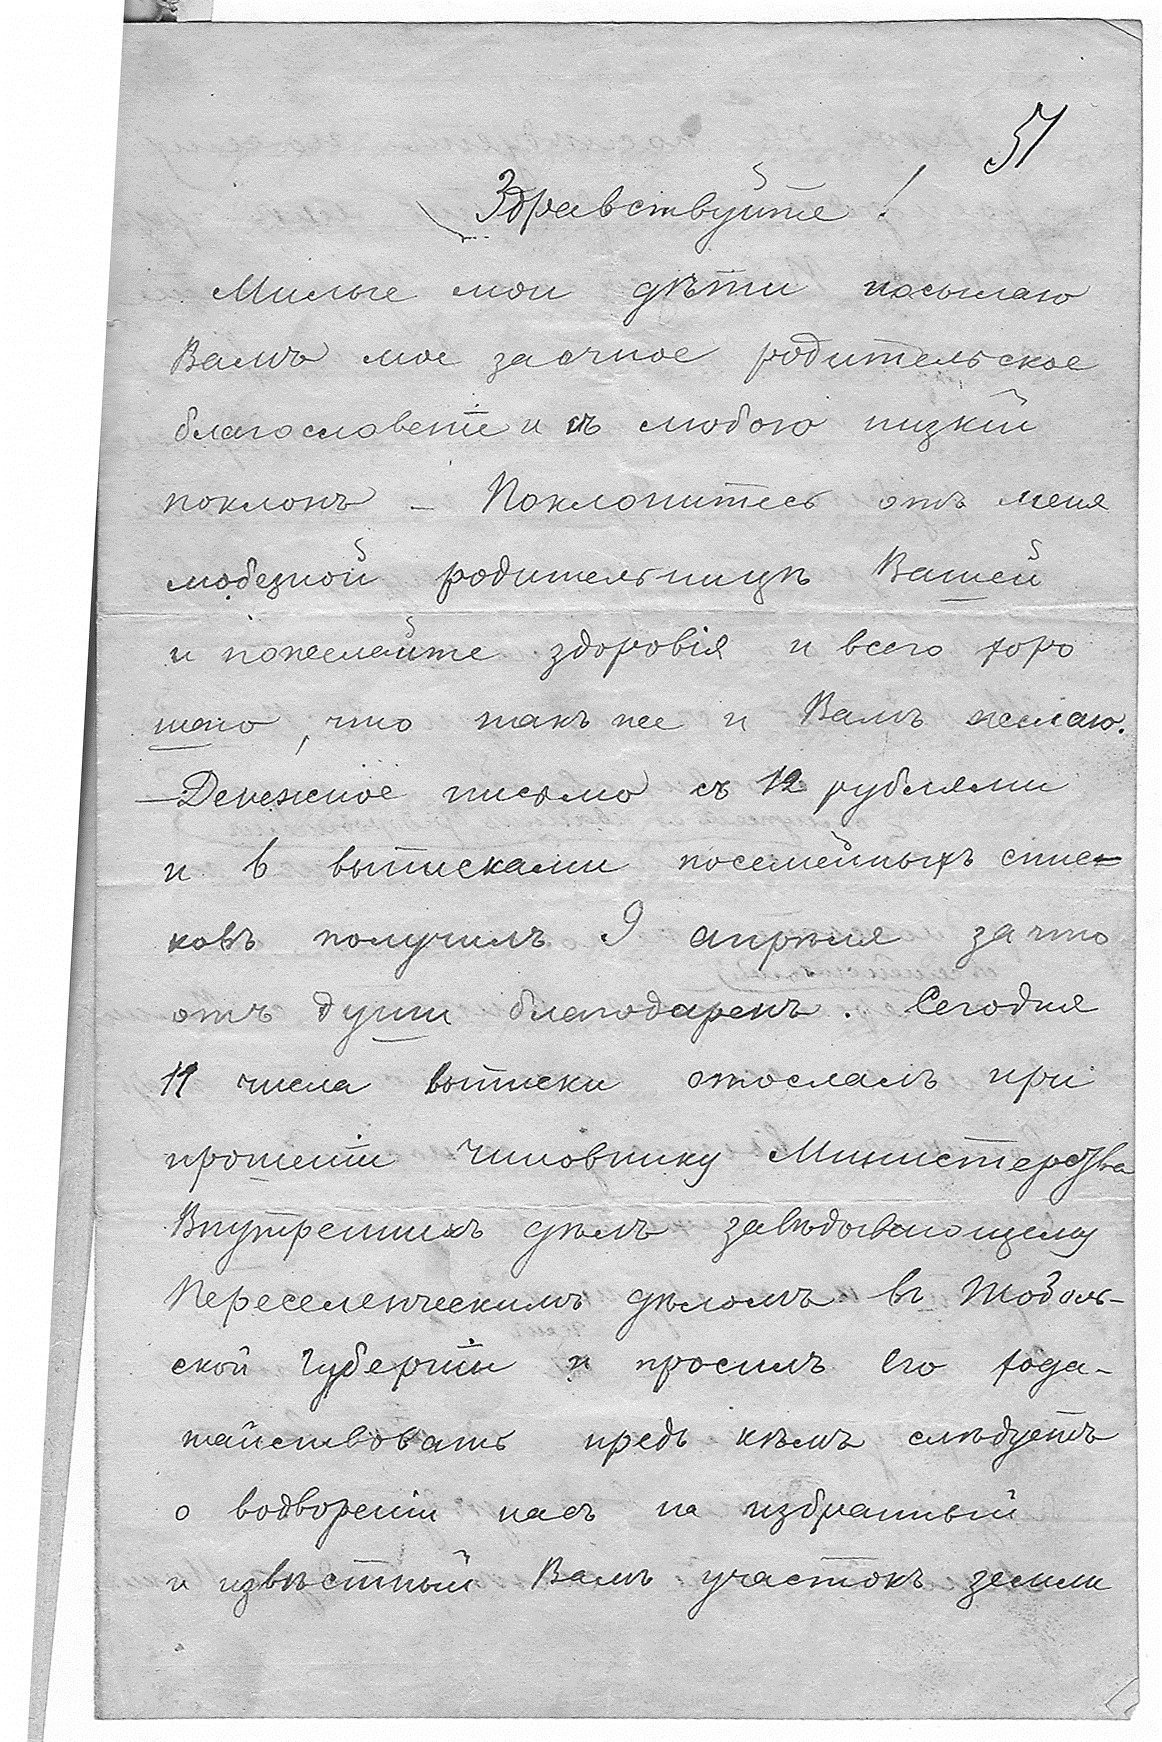 51
Здравствуйте!
Милые мои дѣти посылаю
Вамъ мое заочное родительское
благословеніе и съ любовю низкій
поклонъ — Поклонитесь отъ меня
любезной родительницѣ Вашей
и пожелайте здоровія и всего хоро
шаго, что такъ же и Вамъ желаю.
— Денежное письмо съ 12 рублями
и в выписками посемейныхъ спис-
ковъ получилъ 9 апрѣля за что
отъ души благодаренъ. Сегодня
11 числа выписки отослалъ при
прошеніи Чиновнику Министерства
Внутреннихъ дѣлъ завѣдывающему
Переселенческимъ дѣломъ въ Тоболь-
ской Губерніи и просилъ Его хода-
тайствовать предъ кѣмъ слѣдуетъ
о водвореніи насъ на избранный
и извѣстный Вамъ участокъ земли